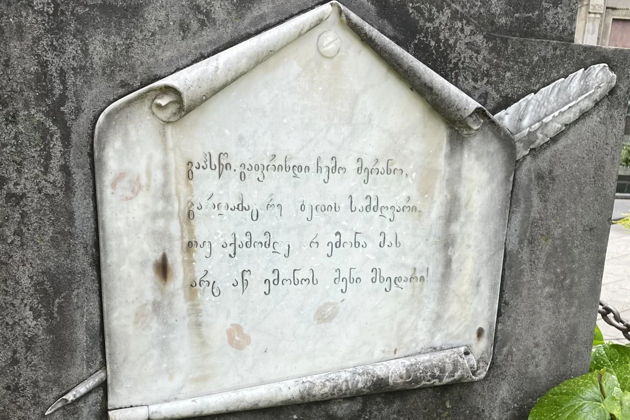 გაჰსწი, გაფრინდი ჩემო მერანო,
გარდამატარე ბედის სამძღვარი.
თუ აქამომდე არ ემონა მას
არც აწ ემონოს შენი მხედარი!